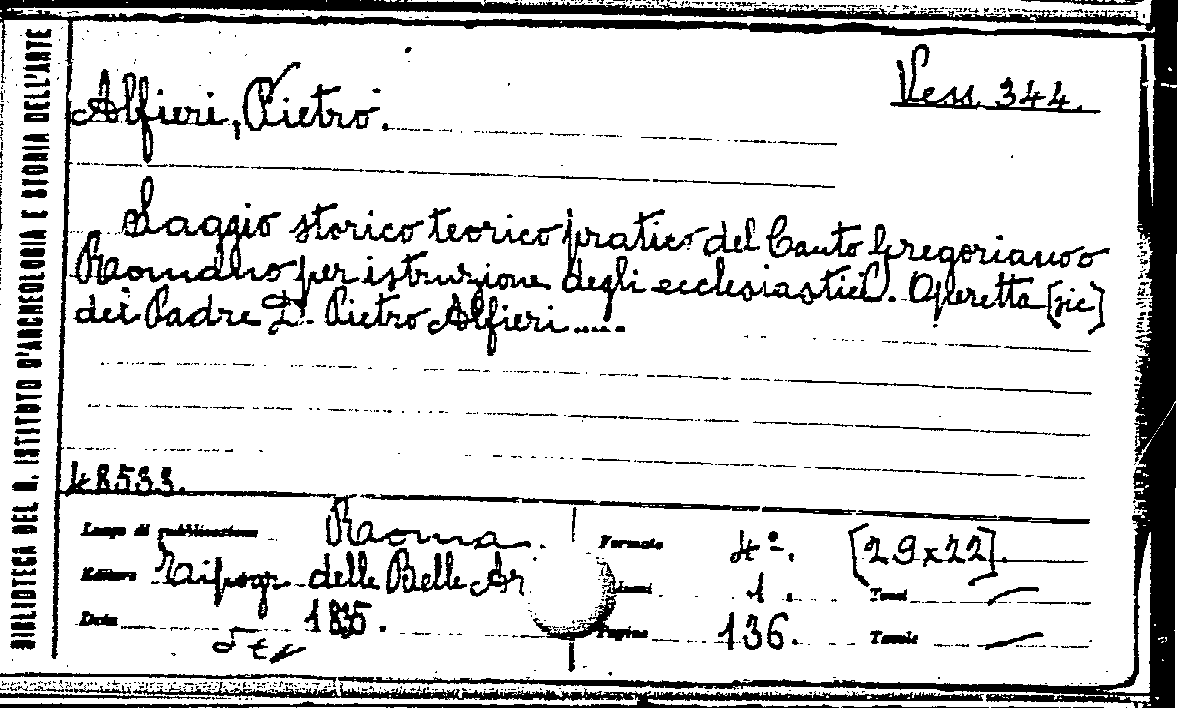 BIBLIOTECA DEL R. ISTITUTO D'ARCHEOLOGIA E STORIA DELL'ARTE
Vess. 344.
Alfieri, Pietro.
Saggio storico teorico pratico del Canto Gregoriano o
Romano per istruzione degli ecclesiastici. Operetta [sic]
del Padre D. Pietro Alfieri.....
48533.
Luogo di pubblicazione Roma. Formato 4°. [29x22].
Editore Tipogr. delle Belle Ar Volumi 1. Tomi —
Data 1835. Pagine 136. Tavole —